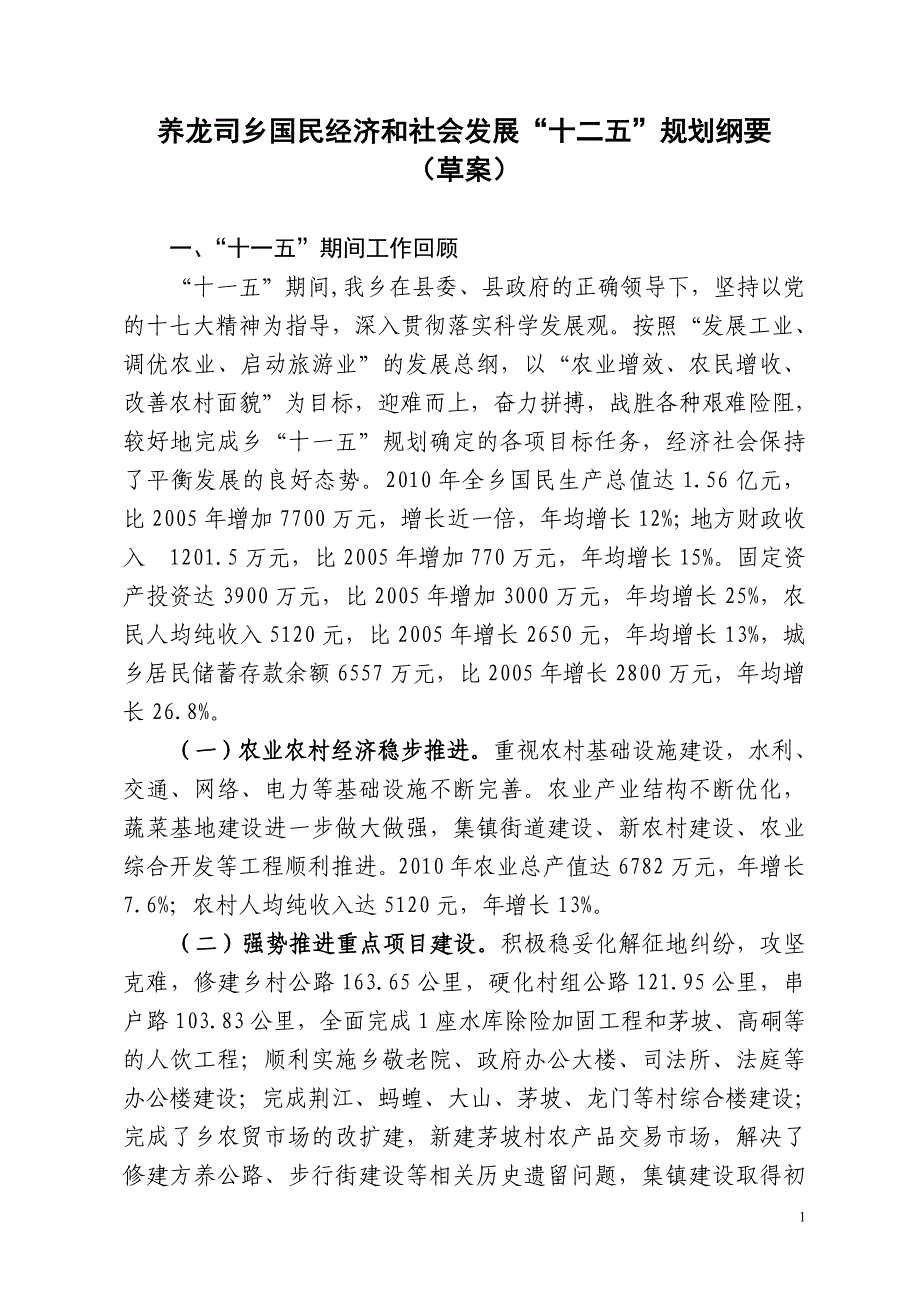 养龙司乡国民经济和社会发展“十二五”规划纲要
（草案）
一、“十一五”期间工作回顾
“十一五”期间,我乡在县委、县政府的正确领导下，坚持以党
的十七大精神为指导，深入贯彻落实科学发展观。按照“发展工业、
调优农业、启动旅游业”的发展总纲，以“农业增效、农民增收、
改善农村面貌”为目标，迎难而上，奋力拼搏，战胜各种艰难险阻，
较好地完成乡“十一五”规划确定的各项目标任务，经济社会保持
了平衡发展的良好态势。2010年全乡国民生产总值达1.56亿元，
比2005年增加7700万元，增长近一倍，年均增长12%；地方财政收
入 1201.5万元，比2005年增加770万元，年均增长15%。固定资
产投资达3900万元，比2005年增加3000万元，年均增长25%，农
民人均纯收入5120元，比2005年增长2650元，年均增长13%，城
乡居民储蓄存款余额6557万元，比2005年增长2800万元，年均增
长26.8%。
（一）农业农村经济稳步推进。重视农村基础设施建设，水利、
交通、网络、电力等基础设施不断完善。农业产业结构不断优化，
蔬菜基地建设进一步做大做强，集镇街道建设、新农村建设、农业
综合开发等工程顺利推进。2010年农业总产值达6782万元，年增长
7.6%；农村人均纯收入达5120元，年增长13%。
（二）强势推进重点项目建设。积极稳妥化解征地纠纷，攻坚
克难，修建乡村公路163.65公里，硬化村组公路121.95公里，串
户路103.83公里，全面完成1座水库除险加固工程和茅坡、高硐等
的人饮工程；顺利实施乡敬老院、政府办公大楼、司法所、法庭等
办公楼建设；完成荆江、蚂蝗、大山、茅坡、龙门等村综合楼建设；
完成了乡农贸市场的改扩建，新建茅坡村农产品交易市场，解决了
修建方养公路、步行街建设等相关历史遗留问题，集镇建设取得初
1